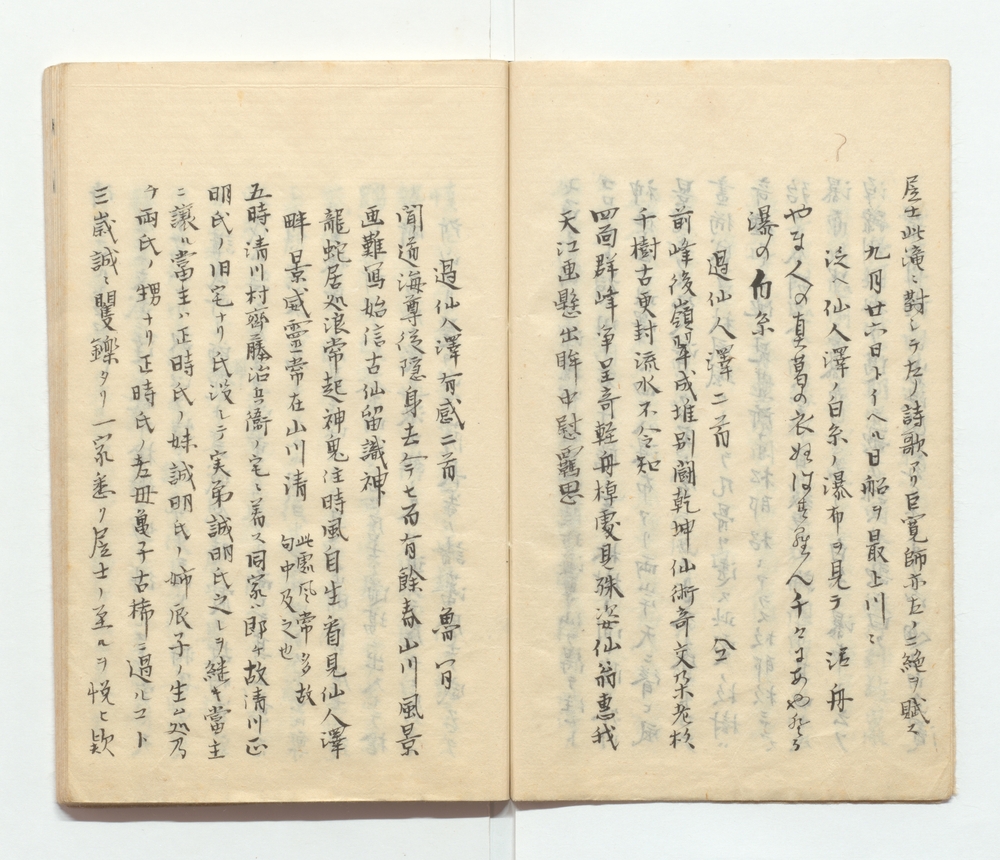 居士此滝ニ対シテ左ノ詩歌アリ巨寛師亦左ノ二絶ヲ賦ス
九月廿六日トイヘル日船ヲ最上川ニ
泛ヘ仙人澤ノ白糸ノ瀑布ヲ見テ 活舟
やま人の真葛の衣
瀑の白糸
過仙人澤二首 仝
前峰後嶺翠成堆別闢乾坤仙術奇交朶老杉
千樹古更封流水不令知
四面群峰争呈奇軽舟棹處見殊姿仙翁恵我
天江画懸出眸中慰羈思
過仙人澤有感二首 魯一百
聞道海尊従隠身去今七百有餘春山川風景
画難寫始信古仙留識神
龍蛇居処浪常起神鬼住時風自生看見仙人澤
畔景威霊常在山川清 此處風常多故
句中及之也
五時、清川村齊藤治兵衛ノ宅ニ着ス同家ハ即ケ故清川正
明氏ノ旧宅ナリ氏没シテ実弟誠明氏之レヲ継キ當主
ニ譲ル當主ハ正時氏ノ妹誠明氏ノ姉辰子ノ生ム処乃
チ両氏ノ甥ナリ正時氏ノ老母亀子古稀ニ過ルコト
三歳誠ニ矍鑠タリ一家悉ク居士ノ至ルヲ悦ヒ款